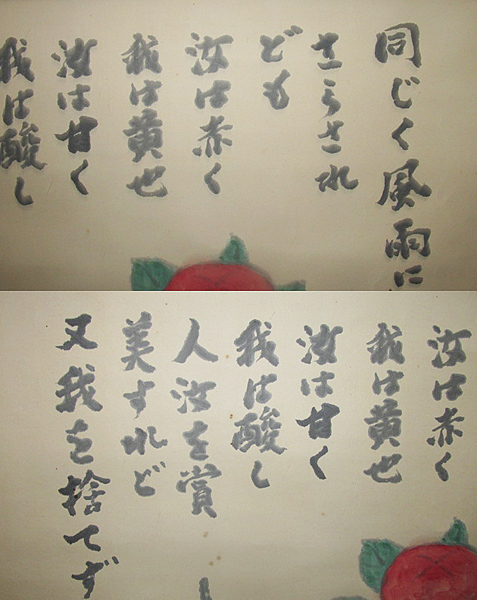 同じく風雨に
さらされ
ども
汝は赤く
我は黄也
汝は甘く
我は酸し
汝は赤く
我は黄也
汝は甘く
我は酸し
人汝を賞
美すれど
又我を捨てず